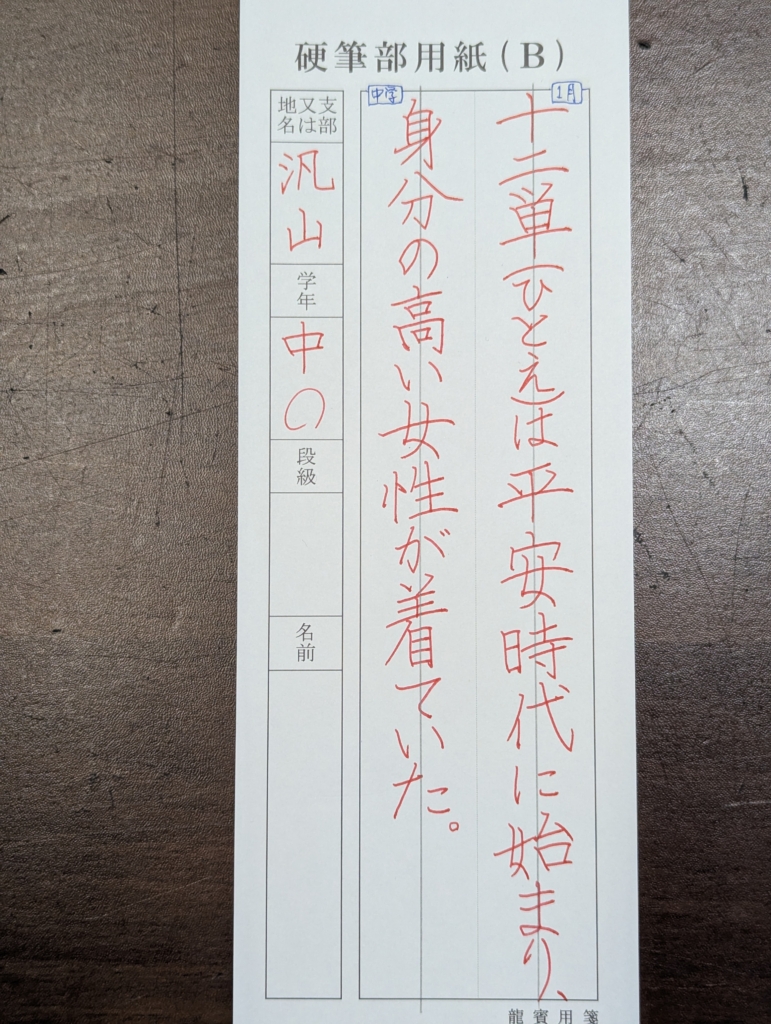 硬筆部用紙(B)
1月
十二単(ひとえ)は平安時代に始まり、
中学
身分の高い女性が着ていた。
支部又は地名
汎山
学年
中の
段級
名前
龍賓用箋